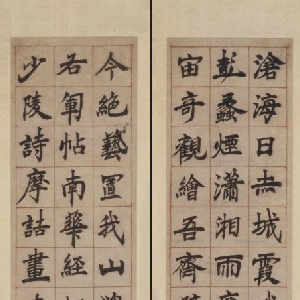 滄海日赤城霞
彭蠡煙瀟湘雨
宙奇觀繪吾齊
今絕藝置我山
右軍帖南華經
少陵詩摩詰畫